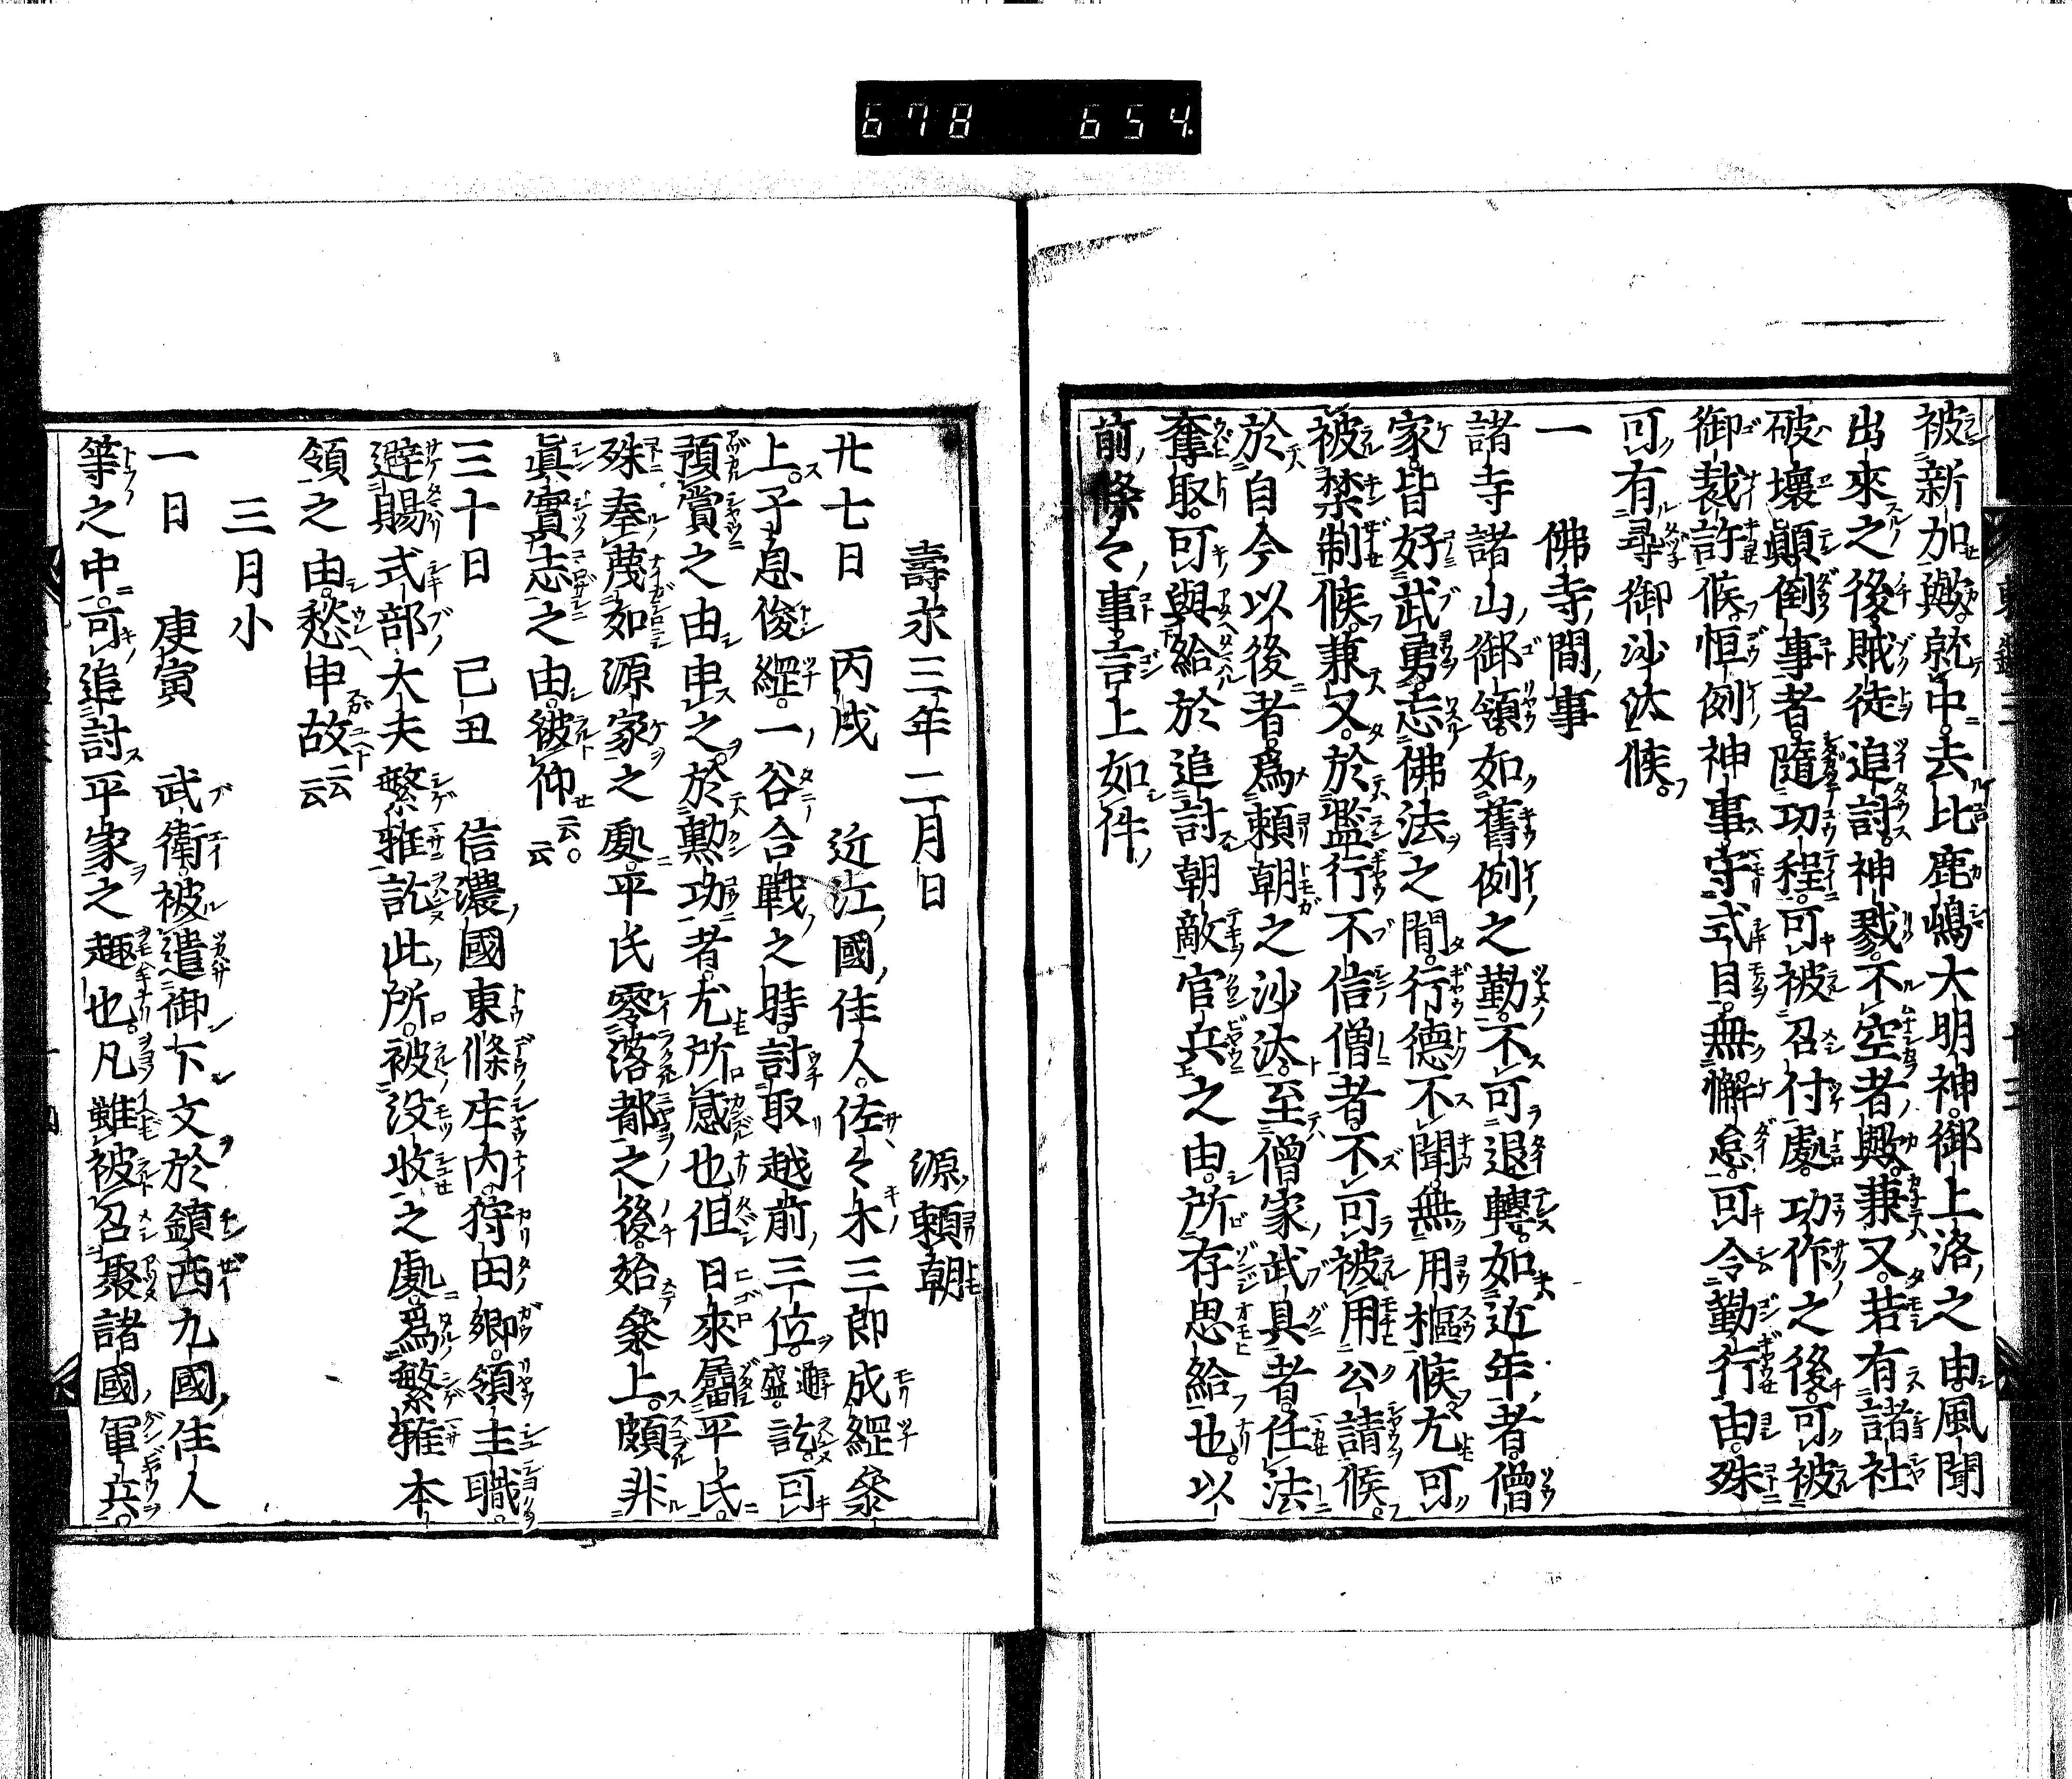 678 654.
被新加歟。就中。去比鹿嶋大明神。御上洛之由。風聞
出來之後。賊徒追討。神戮。不空者歟。兼又。若有諸社
破壞顛倒事者。隨功程。可被召付處。功作之後。可被
御裁許候。恒例神事。守式目。無懈怠。可令勤行由。殊
可有尋御沙汰候。
一 佛寺間事
諸寺諸山御領。如舊例之勤。不可退轉。如近年者。僧
家。皆好武勇。忘佛法之間。行德不聞。無用樞候。尤可
被禁制候。兼又。於濫行不信僧者。不可被用公請候。
於自今以後者。爲頼朝之沙汰。至僧家武具者。任法
奪取。可與給於追討朝敵官兵之由。所存思給也。以
前條々事。言上如件。
壽永三年二月日 源頼朝
廿七日 丙戌 近江國住人。佐々木三郎成經參
上。子息俊經。一谷合戰之時。討取越前三位。通盛。訖。可
預賞之由申之。於勲功者。尤所感也。但日來屬平氏。
殊奉蔑如源家之處。平氏零落都之後。始參上。頗非
眞實志之由。被仰云云。
三十日 己丑 信濃國東條庄内。狩田郷。領主職。
避賜式部大夫繁雅訖。此所。被没收之處。爲繁雅本
領之由。愁申故云云
三月小
一日 庚寅 武衛。被遣御下文於鎮西九國住人
等之中。可追討平家之趣也。凡雖被召聚諸國軍兵。